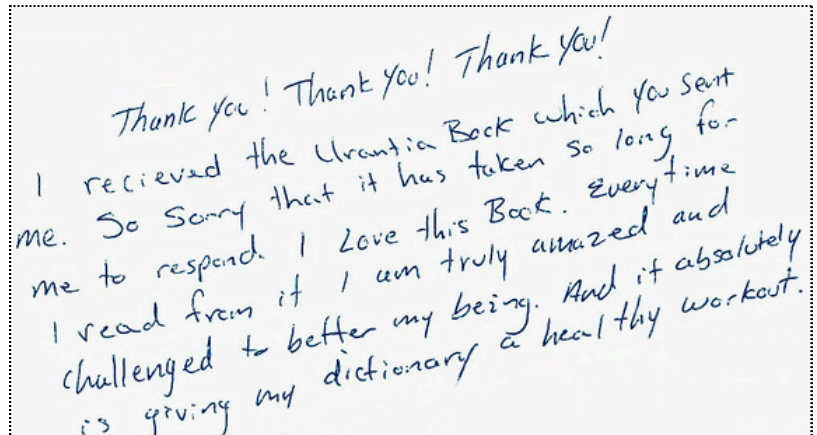 Thank you! Thank you! Thank you!
I recieved the Urantia Book which you sent
me. So sorry that it has taken so long for
me to respond. I Love this Book. Everytime
I read from it I am truly amazed and
challenged to better my being. And it absolutely
is giving my dictionary a healthy workout.